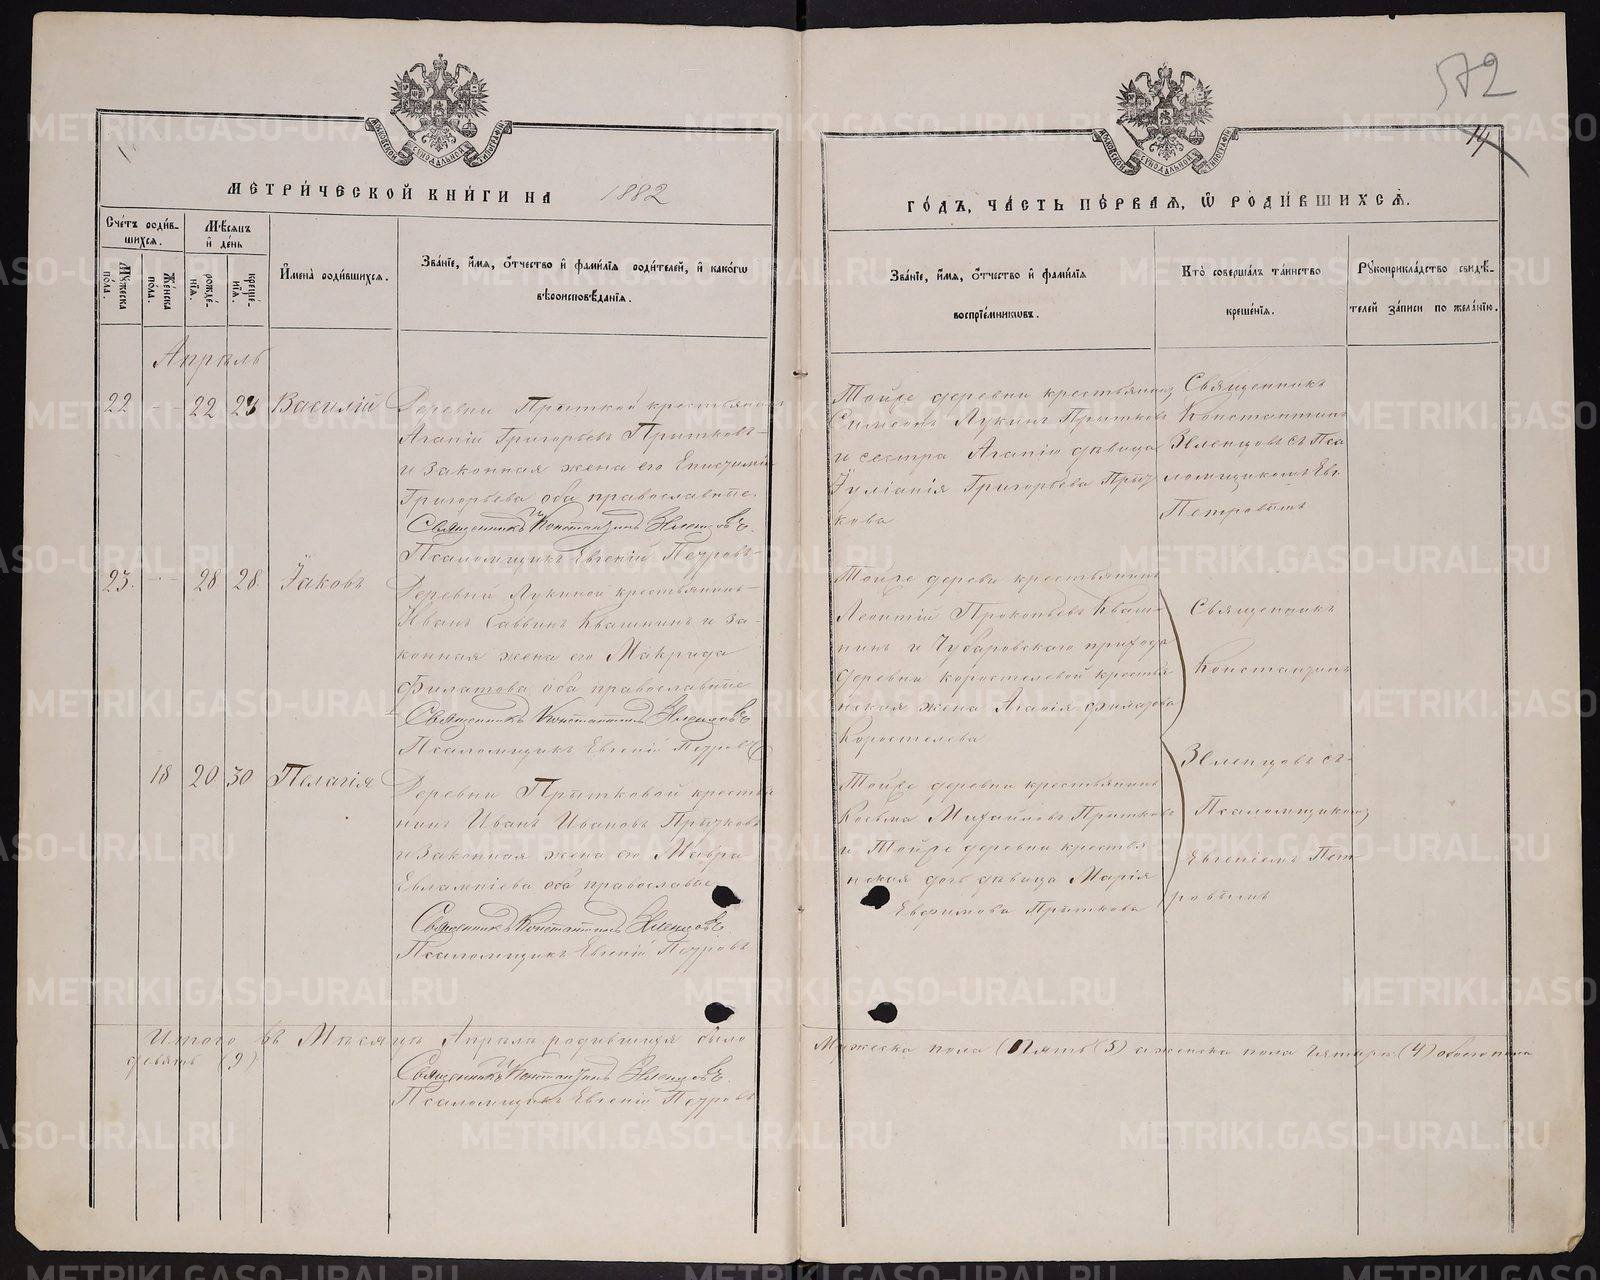 572
14
МОСКОВСКОЙ СУНОДАЛЬНОЙ ТИПОГРАФІИ
МОСКОВСКОЙ СУНОДАЛЬНОЙ ТИПОГРАФІИ
МЕТРИ́ЧЕСКОЙ КНИ́ГИ НА 1882
ГО́ДЪ, ЧА́СТЬ ПЕ́РВАѦ, Ѡ҆ РОДИ́ВШИХСѦ.
Сче́тъ роди́в-
шихсѧ.
Мѣ́сѧцъ
и҆ де́нь
Мꙋ́жеска
по́ла.
Же́нска
по́ла.
рожде́-
нїѧ.
креще́-
нїѧ.
И҆мена̀ роди́вшихсѧ.
Зва́нїе, и҆́мѧ, ѻ҆́тчество и҆ фами́лїѧ роди́телей, и҆ како́гѡ
вѣроисповѣ́данїѧ.
Зва́нїе, и҆́мѧ, ѻ҆́тчество и҆ фами́лїѧ
воспрїе́мникѡвъ.
Кто̀ соверша́лъ та́инство
креще́нїѧ.
Рꙋкоприкла́дство свидѣ́-
телей за́писи по жела́нїю.
Апрѣль
22 - - 22 23 Василій
Деревни Прыткой крестьянинъ
Агапій Григорьевъ Прытковъ
и законная жена его Епистимія
Григорьева оба православные.
Священникъ Константинъ Зеленцовъ.
Псаломщикъ Евгеній Петровъ
Тойже деревни крестьянинъ
Симеонъ Лукинъ Прытковъ
и сестра Агапію дѣвица
Іуліанія Григорьева Прыт
кова
Священникъ
Константинъ
Зеленцовъ съ Пса
ломщикомъ Евг.
Петровымъ
23. - - 28 28. Іаковъ
Деревни Лукиной крестьянинъ
Иванъ Саввинъ Квашнинъ и за-
конная жена его Макрида
Филатова оба православные
Священникъ Константинъ Зеленцовъ
Псаломщикъ Евгеній Петровъ
Тойже деревни крестьянинъ
Леонтій Прокопьевъ Кваш-
нинъ и Чубаровскаго прихода
деревни Коростелевой крестья
нская жена Агапія Филатова
Коростелева
Священникъ
Константинъ
Зеленцовъ съ
Псаломщикомъ
Евгеніемъ Пет
ровымъ
18 20 30 Пелагія
Деревни Прытковой крестья
нинъ Иванъ Ивановъ Прытковъ
и законная жена его Мавра
Евлампіева оба православные
Священникъ Константинъ Зеленцовъ.
Псаломщикъ Евгеній Петровъ
Тойже деревни крестьянинъ
Косьма Михайловъ Прытковъ
и Тойже деревни крестья
нская дочь дѣвица Марія
Евфимова Прыткова
Итого въ Мѣсяцѣ Апрѣлѣ родившихся было
Мужеска пола Пять (5) а женска пола Четыре (4) обоего пола
девять (9)
Священникъ Константинъ Зеленцовъ.
Псаломщикъ Евгеній Петровъ
METRIKI.GASO-URAL.RU